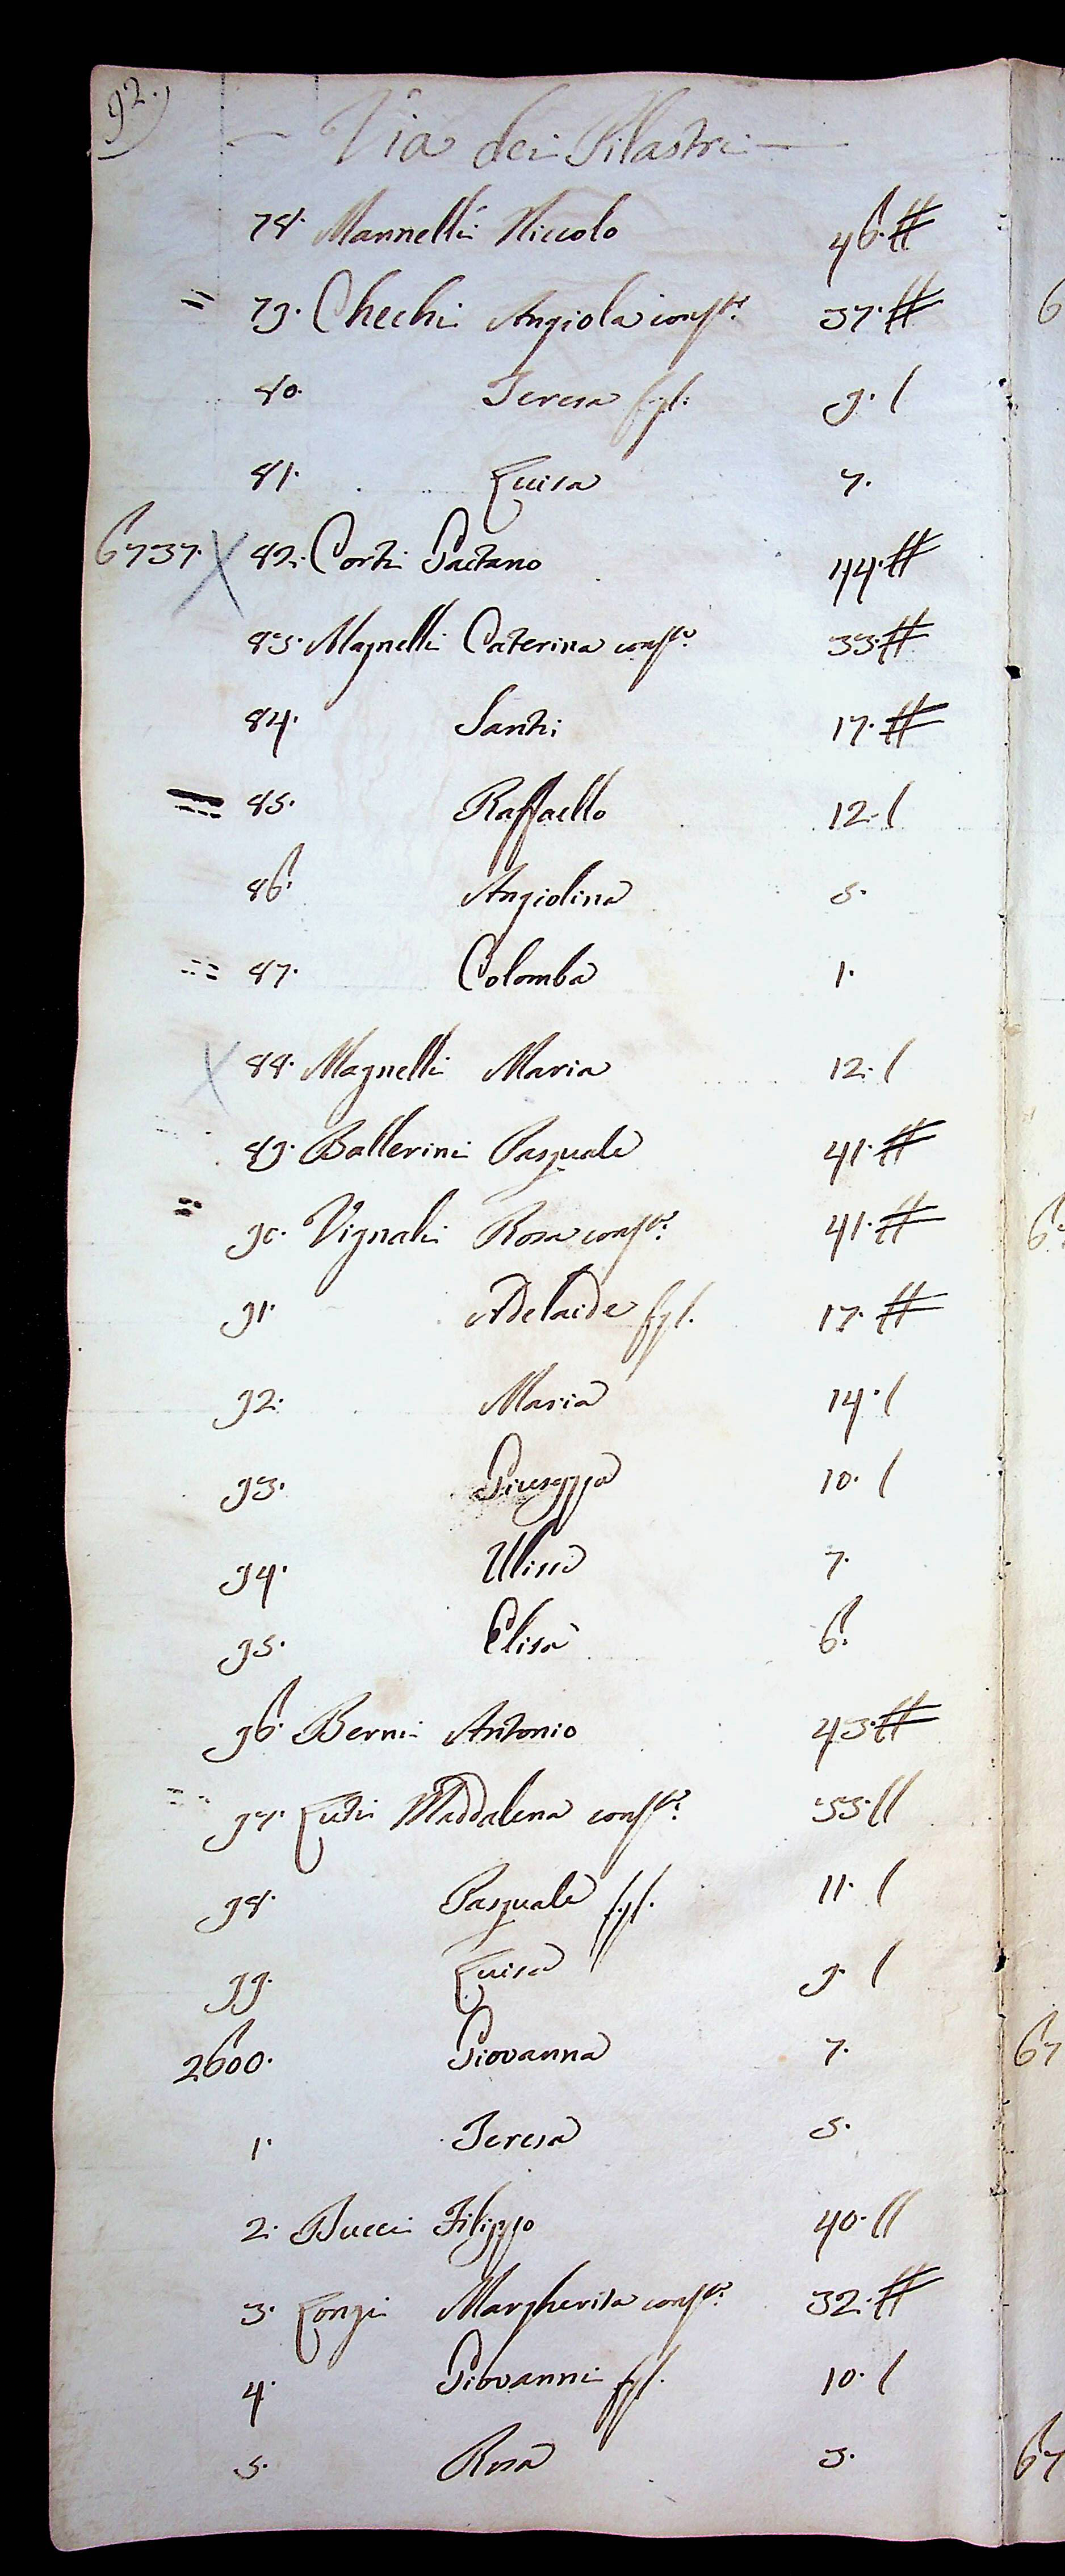 92.
Via dei Pilastri
78. Mannelli Niccolo 46. #
= 79. Chechi Angiola conste. 37. #
80. Teresa figl: 9. /
81. Luisa 7.
6737. X 82. Corti Gaetano 44. #
83. Magnelli Caterina conste. 33. #
84. Santi 17. #
= 85. Raffaello 12. /
86. Angiolina 5.
= 87. Colomba 1.
X 88. Magnelli Maria 12. /
89. Ballerini Pasquale 41. #
= 90. Vignali Rosa conste. 41. #
91. Adelaide figl. 17. #
92. Maria 14. /
93. Giuseppa 10. /
94. Ulisse 7.
95. Elisa 6.
96. Berni Antonio 43. #
= 97. Luti Maddalena conste. 33. //
98. Pasquale figl. 11. /
99. Luisa 9. /
2600. Giovanna 7.
1. Teresa 5.
2. Bucci Filippo 40. //
3. Longi Margherita conste. 32. #
4. Giovanni figl. 10. /
5. Rosa 3.